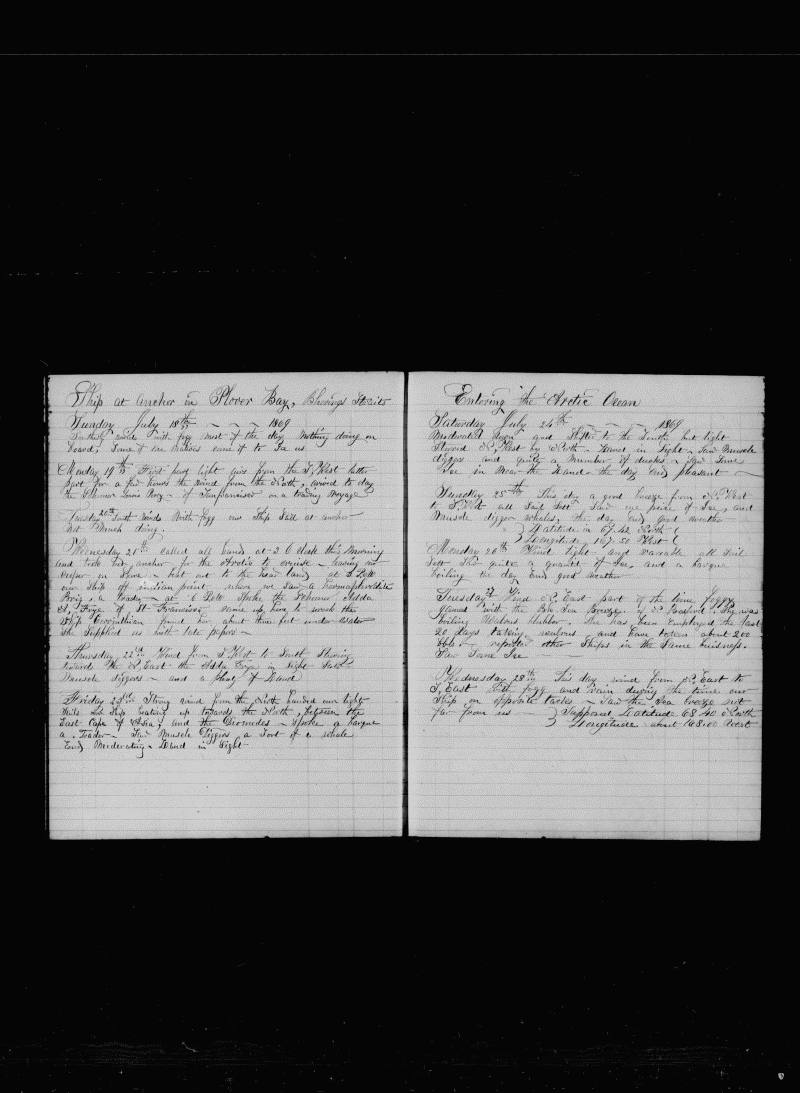 Ship at anchor in Plover Bay, Bherings Straits
Sunday July 18th - - - 1869
Southerly winds with fogg most of the day Nothing doing on
board, Some of the Natives came off to See us
Monday 19th First part light airs from the S. West latter
part for a few hours the wind from the North, arrived to day
the Schooner Louis Perry of San Francisco on a trading voyage
Tuesday 20th South winds With fogg our Ship Still at anchor
not Much doing.
Wednesday 21st called all hands at 2 O clock this Morning
and took our anchor for the Arctic to cruise - leaving our
Keeper on Shore - beat out to the head land at
our Ship off indian point where we Saw a hermaphrodite
Brig, a trader - at 6 P.M. Spoke the Schooner Adda
A. Frye of St Francisco came up here to wreck the
Ship Corinthian found her about three feet under water
She Supplied us with late papers -
Thursday 22nd Wind from S. West to South Steering
towards the N East the Adda Frye in Sight Saw
Muscle diggers - and a plenty of Land
Friday 23rd Strong wind from the North handed our light
Sails the Ship beating up towards the North, between the
East Cape of Asia, and the Diomedes - Spoke a barque
a Trader - Saw Muscle Diggers a Sort of a whale
Ends Moderating - Land in Sight
Entering the Arctic Ocean
Saturday July 24th - - - 1869
Moderated down and Shifted to the South but light
Steered N. West by North - Land in Sight - Saw Muscle
diggers and quite a Number of ducks - Saw Some
Ice in Near the Land - the day Ends pleasant -
Sunday 25th This day a good breeze from N. West
to S. West all Sail Sett Saw one piece of Ice, and
Muscle digger whales, the day Ends good weather
Latitude in 67.42 North
Longitude 167.50 West
Monday 26th Wind light and variable all Sail
Sett Saw quite a quantity of Ice and a barque
boiling the day Ends good weather
Tuesday 27 Wind N. East part of the time foggy
gamed with the Bq Sea Breeze of N. Bedford, She was
boiling Walrus blubber. She has been Employed the last
20 days taking walrus and have taken about 200
bbls - reported other Ships in the Same buisness.
Saw Some Ice
Wednesday 28th This day wind from N. East to
S. East With fogg and Rain during the time our
Ship on opposite tacks - Saw the Sea breeze not
far from us Supposed Latitude 68.40 North
Longitude about 168.00 West